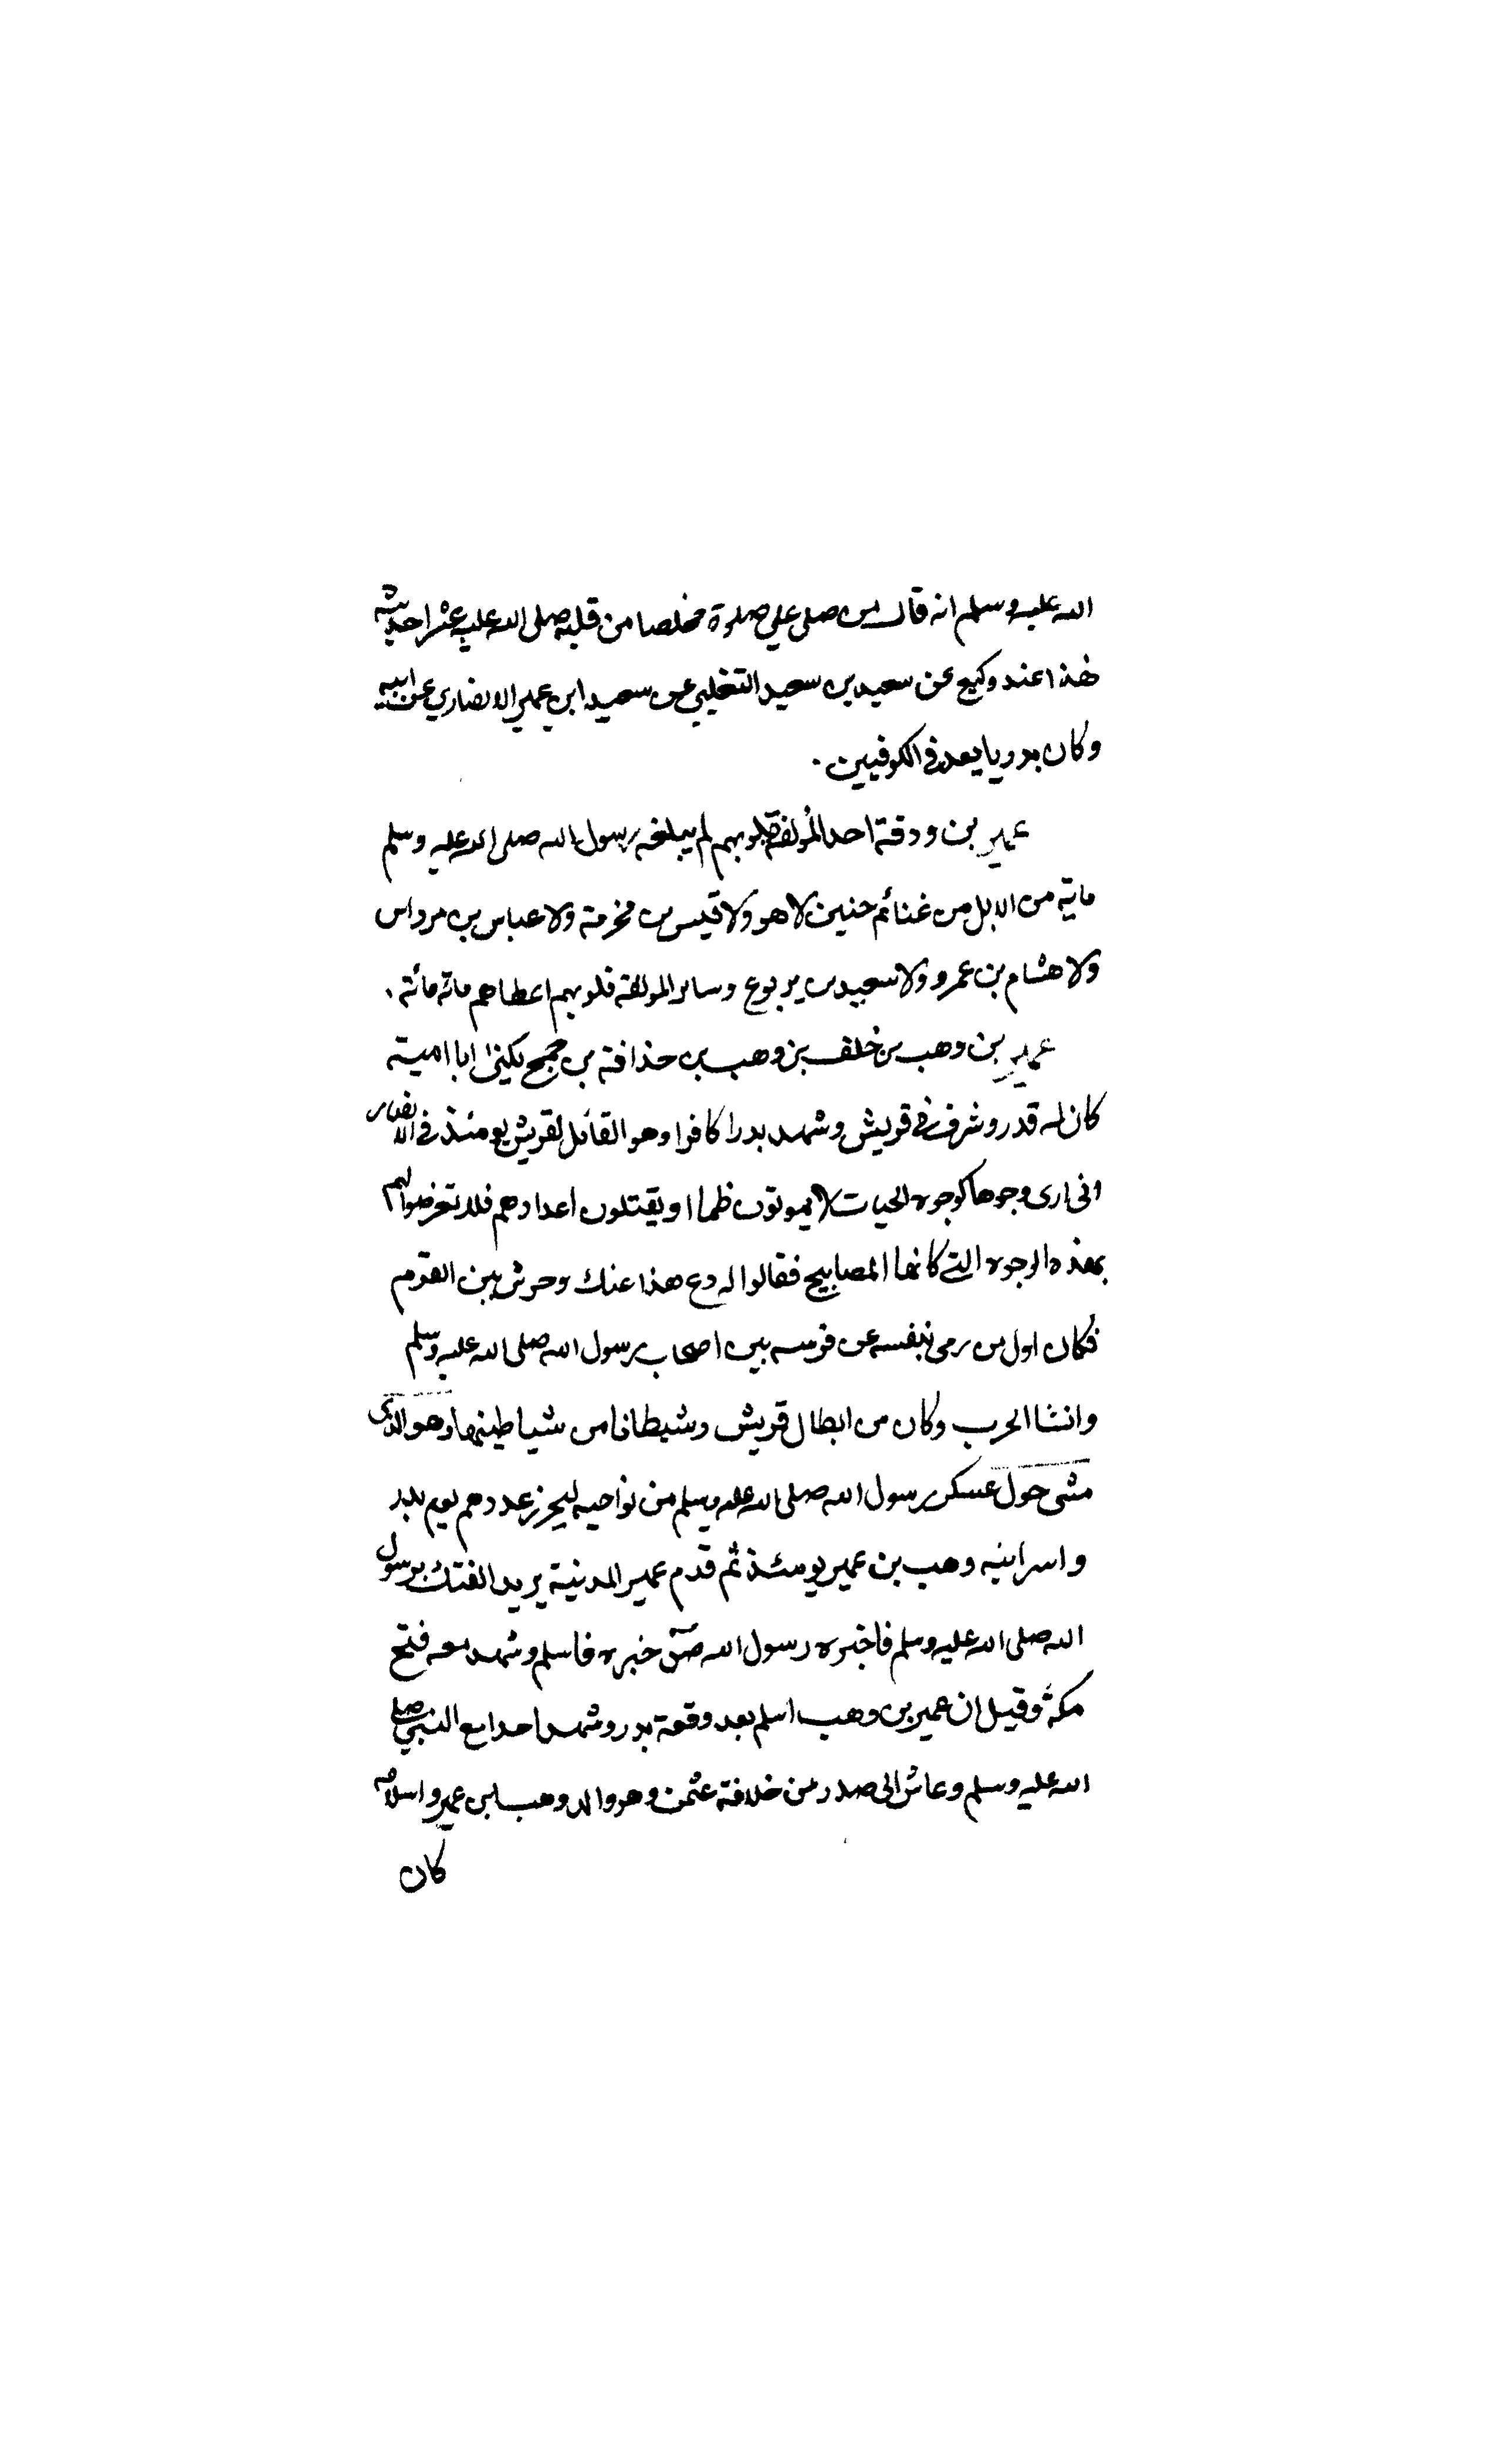 الله عليه وسلم انه قال من صلى علي صلوة مخلصا من قلبه صلى الله عليه عشرا حديثه
هذا عند وكيع عن سعيد بن سعيد التغلبي عن سعيد ابن عمير الانصاري عن ابيه
وكان بدريا يعد في الكوفيين .
عمير بن ودقة احد المؤلفة قلوبهم لم يبلغه رسول الله صلى الله عليه وسلم
ماية من الابل من غنائم حنين لا هو ولا قيس بن مخرمة ولا عباس بن مرداس
ولا هشام بن عمرو ولا سعيد بن يربوع وساير المولفة قلوبهم اعطاهم مائة مائة .
عمير بن وهب بن خلف بن وهب بن حذافة بن جمح يكنى ابا امية
كان له قدر وشرف في قريش وشهد بدرا كافرا وهو القائل لقريش يومئذ في الانصار
انى ارى وجوها كوجوه الحيات لا يموتون ظما او يقتلون اعدادهم فلا تعرضوا لهم
بهذه الوجوه التي كانها المصابيح فقالوا له دع هذا عنك وحرش بين القوم
فكان اول من رمى بنفسه عن فرسه بين اصحاب رسول الله صلى الله عليه وسلم
وانشا الحرب وكان من ابطال قريش وشيطانا من شياطينها وهو الذى
مشى حول عسكر رسول الله صلى الله عليه وسلم من نواحيه ليحزر عددهم يوم بدر
واسر ابنه وهب بن عمير يومئذ ثم قدم عمير المدينة يريد الفتك برسول
الله صلى الله عليه وسلم فاخبره رسول الله خبره فاسلم وشهد معه فتح
مكة وقيل ان عمير بن وهب اسلم بعد وقعة بدر وشهد احدا مع النبي صلى
الله عليه وسلم وعاش الى صدر من خلافة عثمن وهو والد وهب ابن عمير واسلامه
كان